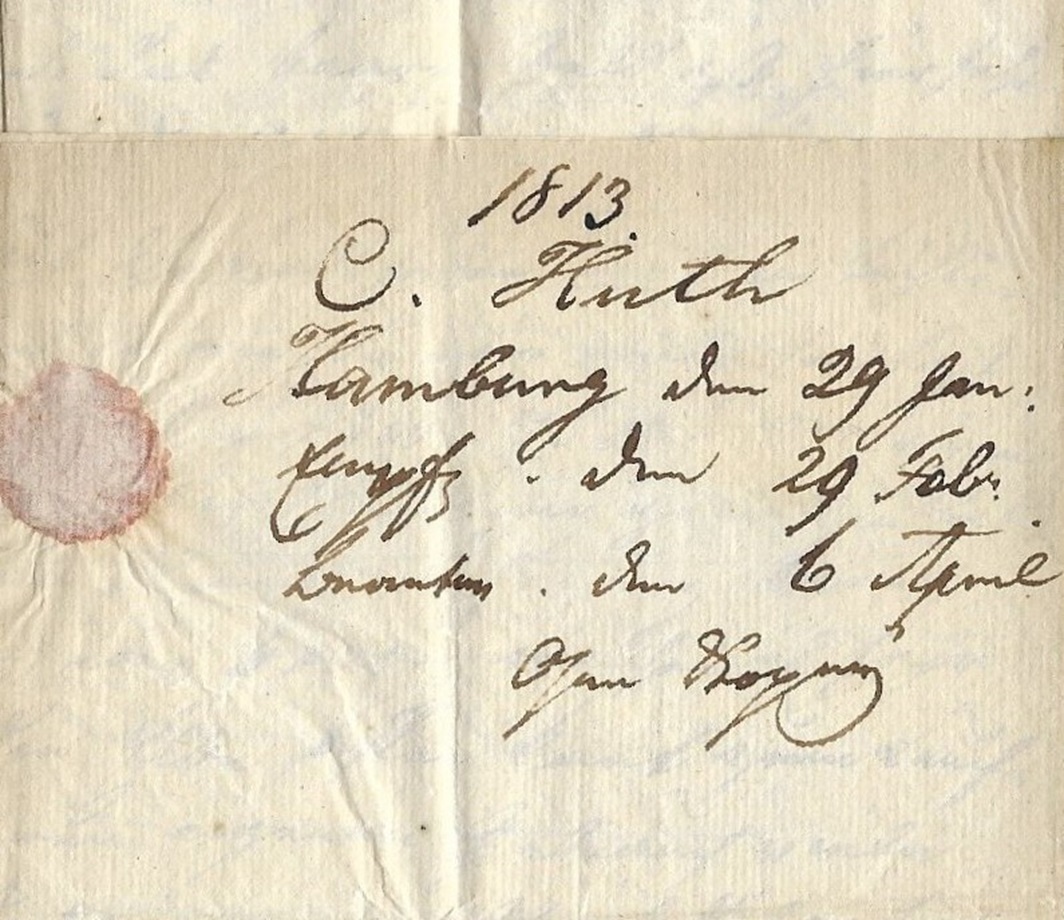 1813.
C. Huth
Hamburg den 29 Jan:
Empf. den 29 Febr.
beantw. den 6 April
Ohne Copie